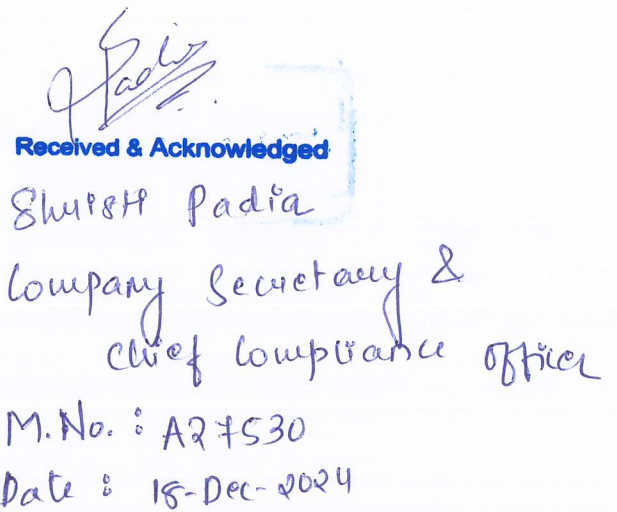 Padia
Received & Acknowledged
Shristi Padia
Company Secretary &
Chief Compliance Officer
M.No. : A27530
Date : 18-Dec-2024